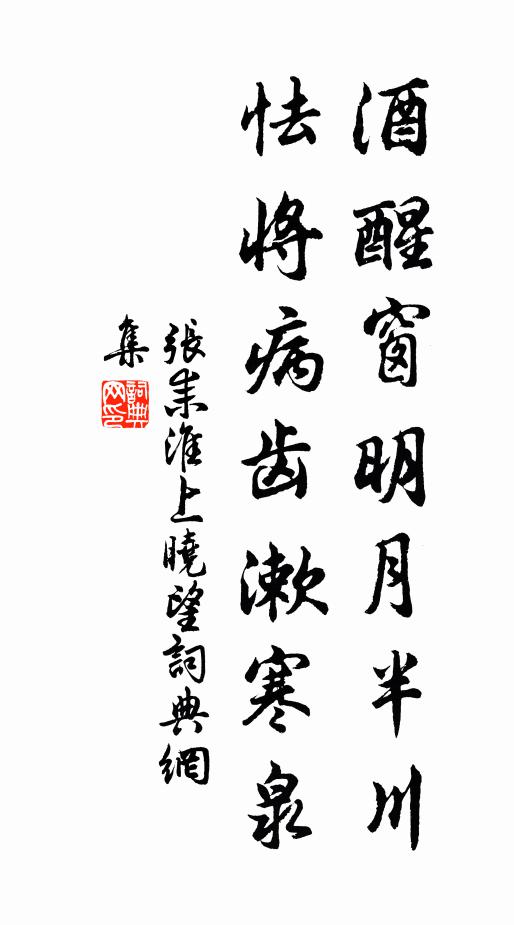 酒醒窗明月半川
怯将病齿漱寒泉
張耒淮上曉望詞典網
集
詞典
网印